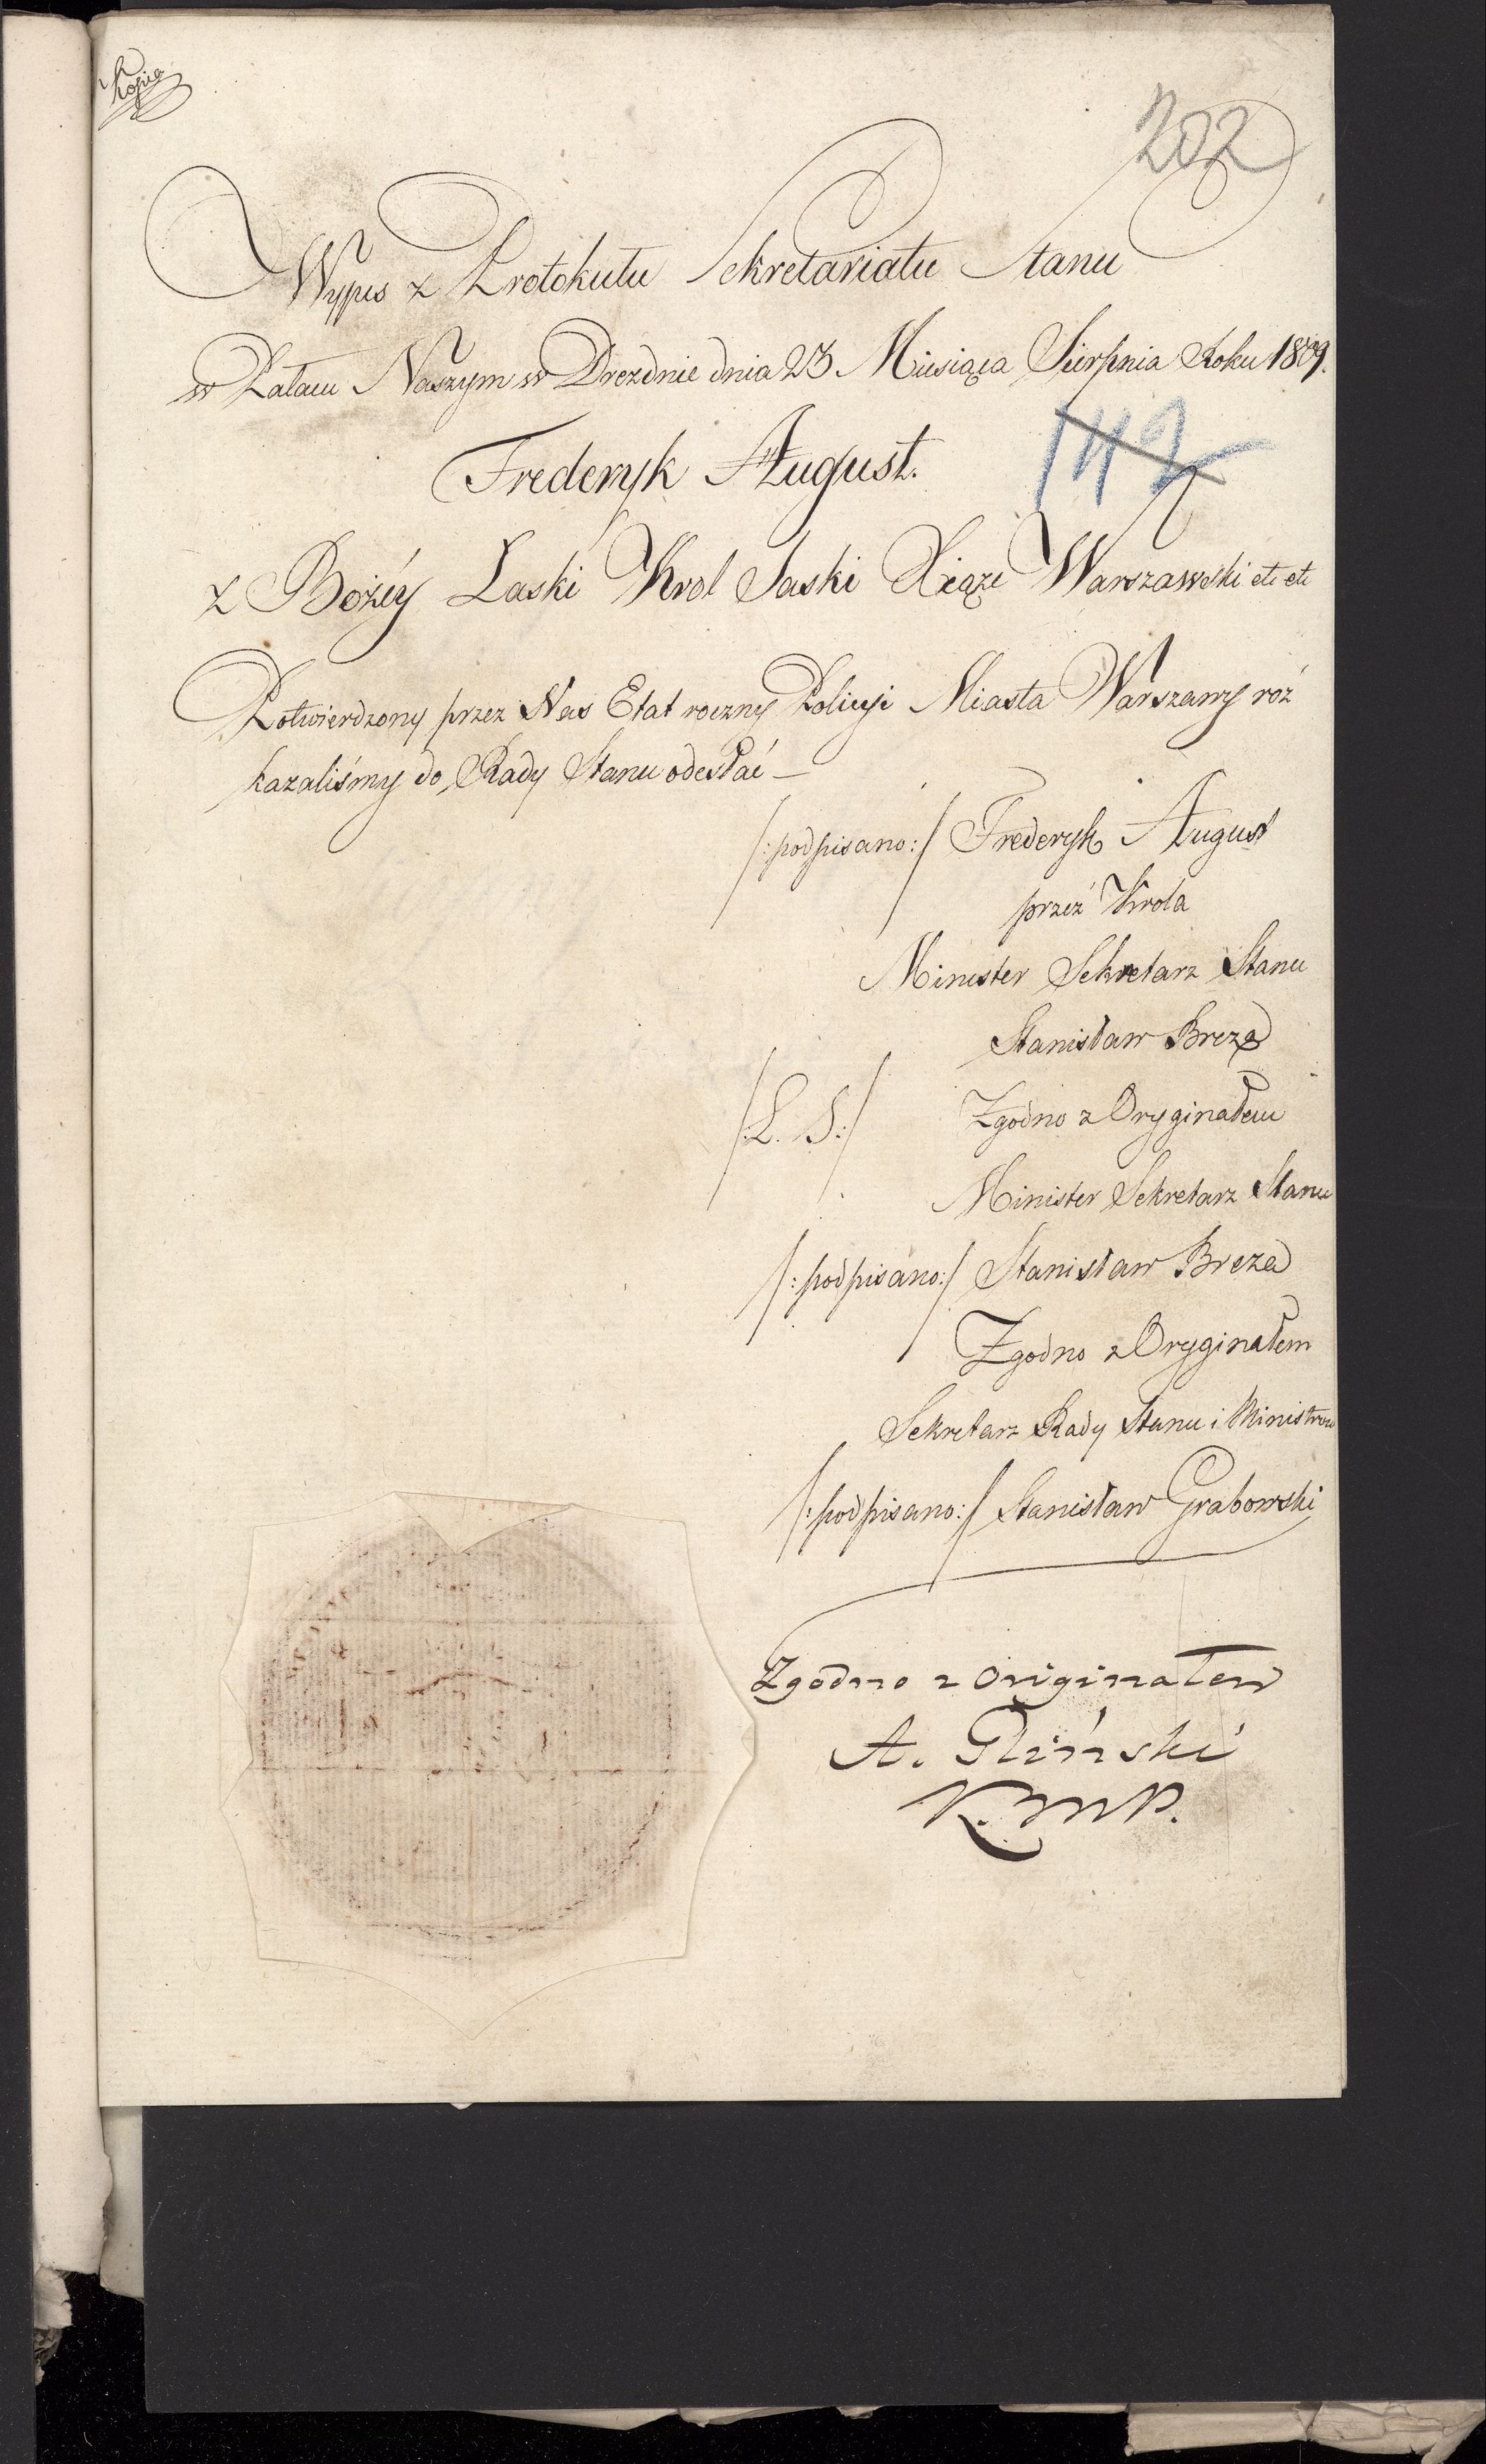 Kopia
202
Wypis z Protokułu Sekretariatu Stanu
w Pałacu Naszym w Dreźdnie dnia 23 Miesiąca Sierpnia Roku 1809.
Frederyk August.
142
z Bożéy Łaski Krol Saski Xiąże Warszawski etc etc
Potwierdzony przez Nas Etat roczny Policyi Miasta Warszawy roz
kazaliśmy do Rady Stanu odesłać —
/:podpisano:/ Frederyk August
przez Krola
Minister Sekretarz Stanu
Stanisław Breza
/:L. S:/ Zgodno z Oryginałem
Minister Sekretarz Stanu
/:podpisano:/ Stanisław Breza
Zgodno z Oryginałem
Sekretarz Rady Stanu i Ministrow
/:podpisano:/ Stanisław Grabowski
Zgodno z Originałem
A. Gliński